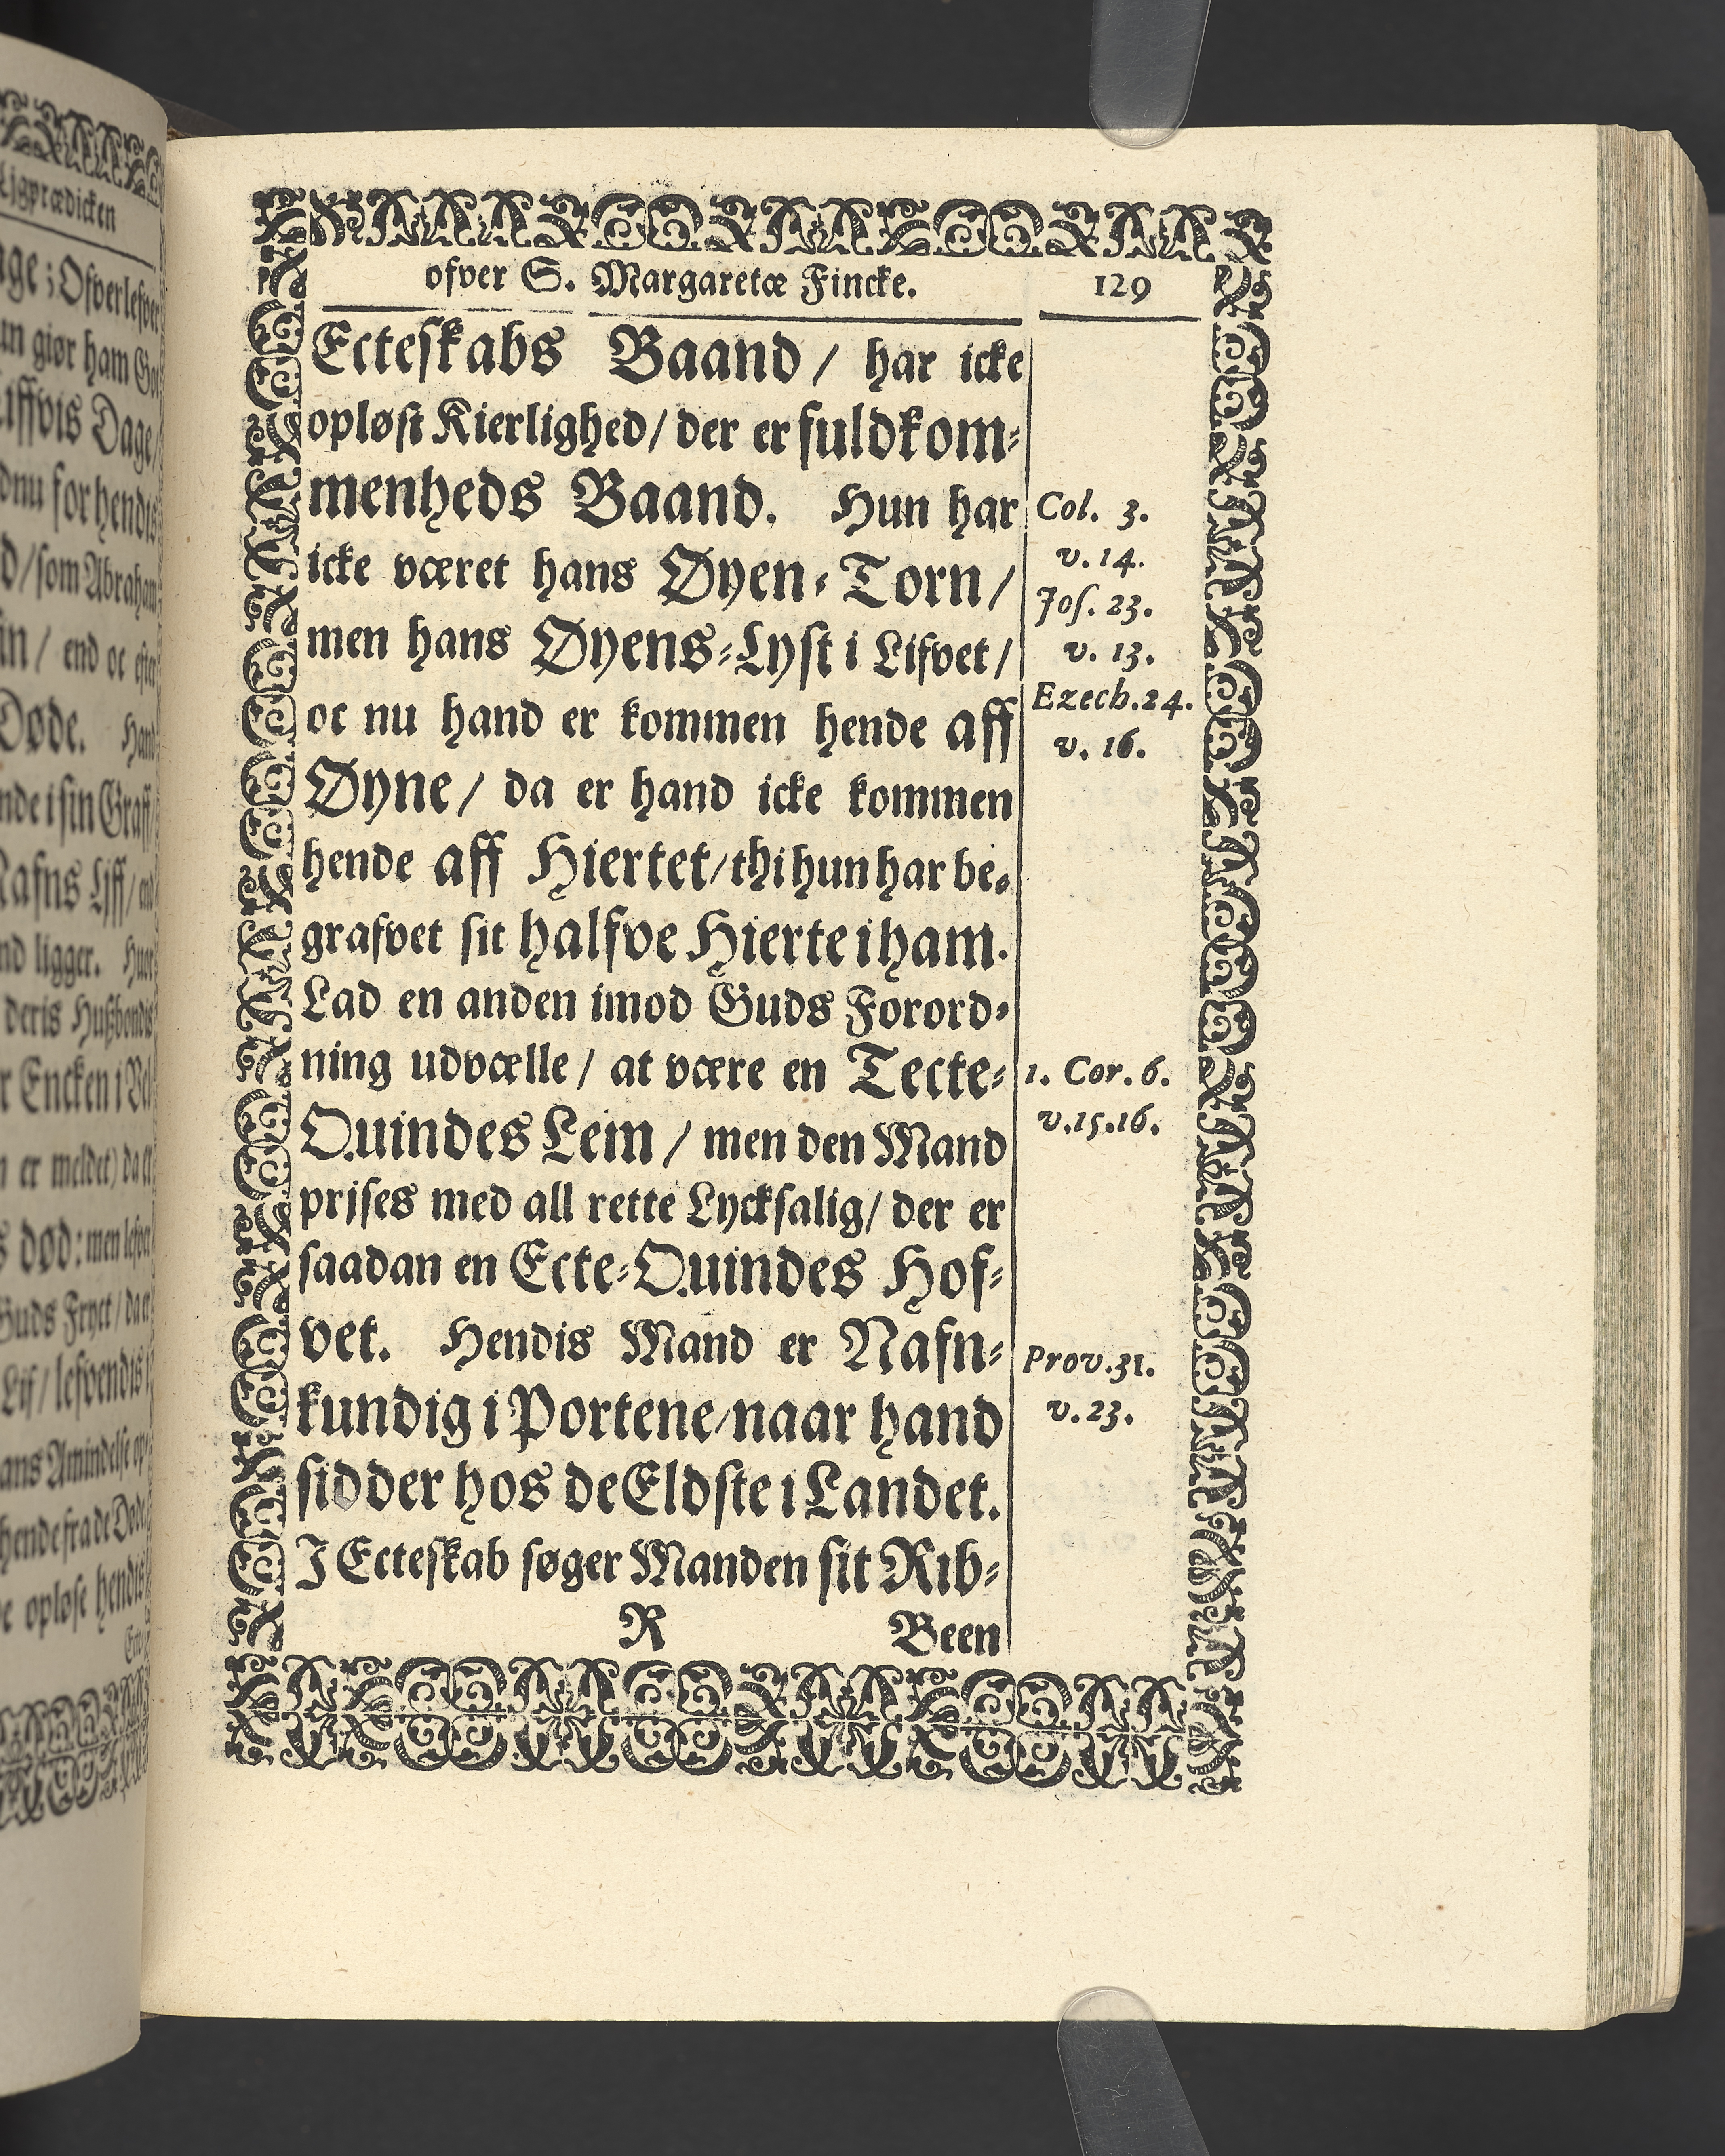 Ljgprædicken
ofver S. Margaretæ Fincke. 129
Ecteskabs Baand / har icke
opløst Kierlighed / der er fuldkom-
menheds Baand. Hun har
icke været hans Øyen-Torn /
men hans Øyens-Lyst i Lifvet /
oc nu hand er kommen hende aff
Øyne / da er hand icke kommen
hende aff Hiertet / thi hun har be-
grafvet sit halfve Hierte i ham.
Lad en anden imod Guds Forord-
ning udvælle / at være en Tecte-
Quindes Lem / men den Mand
prjses med all rette Lycksalig / der er
saadan en Ecte-Quindes Hof-
vet. Hendis Mand er Nafn-
kundig i Portene / naar hand
sidder hos de Eldste i Landet.
I Ecteskab søger Manden sit Rib-
R Been
Col. 3.
v. 14.
Jos. 23.
v. 13.
Ezech. 24.
v. 16.
1. Cor. 6.
v. 15. 16.
Prov. 31.
v. 23.